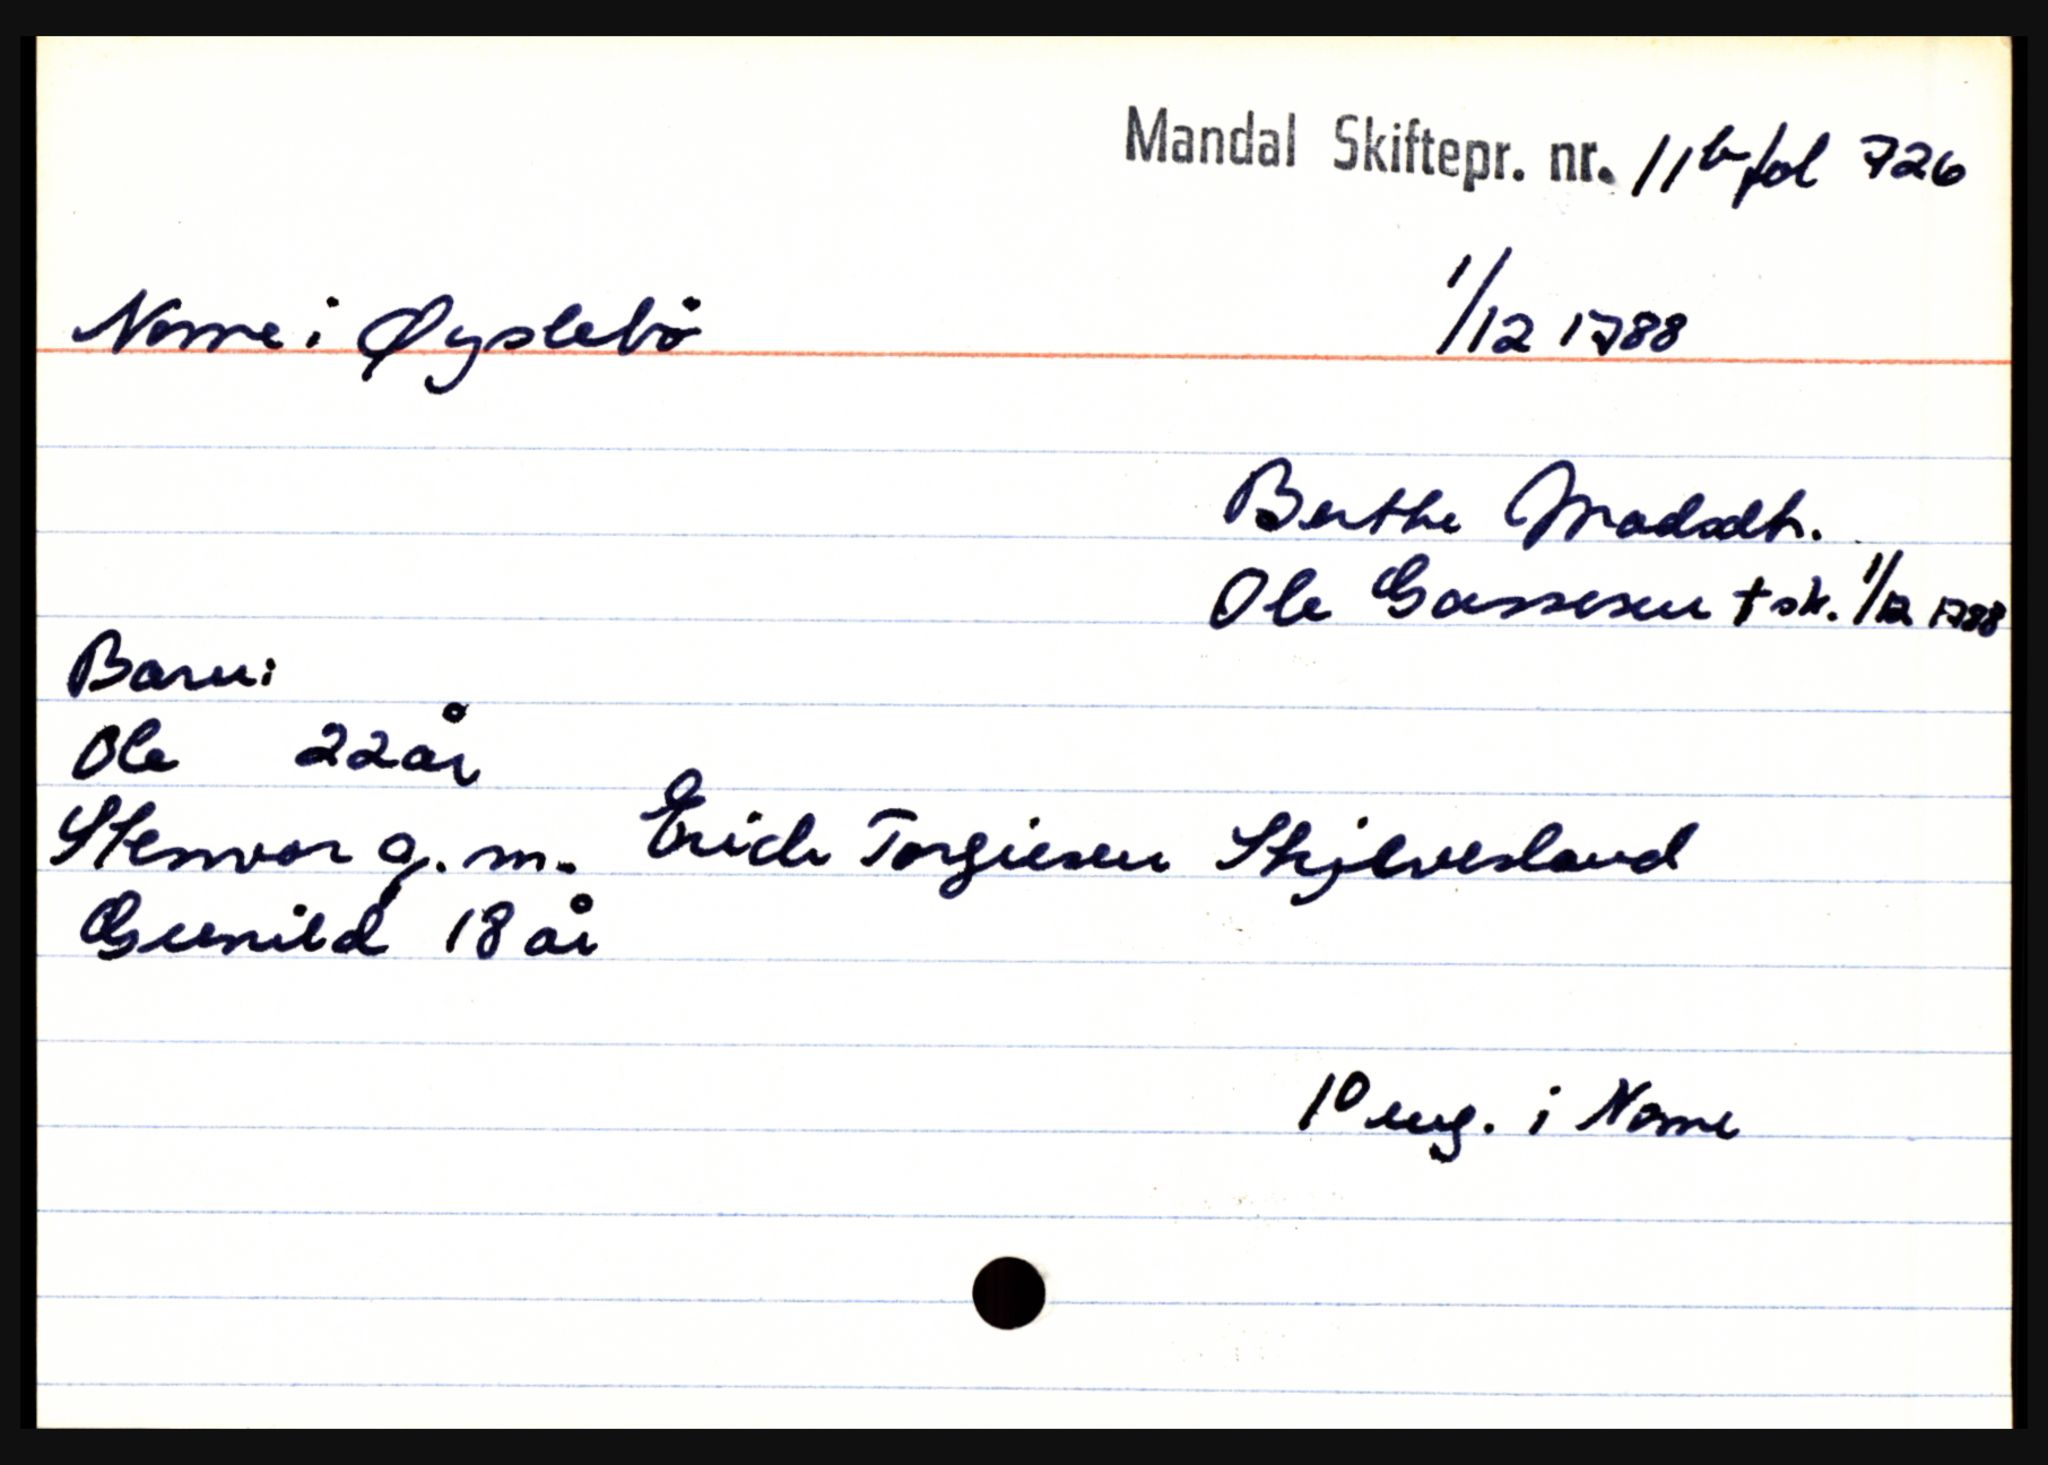 Mandal Skiftepr. nr. 11b fol 726
Nome i Øyslebö 1/12 1788
Berthe Madsdtr.
Ole Gassesen + sk. 1/12 1788
Barn:
Ole 22 år
Stenvor g. m. Erich Torgiesen Skjelvesland
Gunild 18 år
10 eng. i Nome